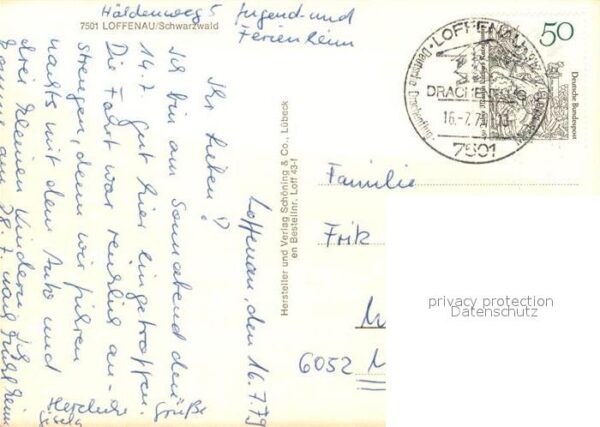 Häldenweg 5 Jugend- und
Ferienheim
7501 LOFFENAU/Schwarzwald
Loffenau, den 16.7.79
Ihr Lieben!
Ich bin am Sonnabend den
14.7. gut hier eingetroffen.
Die Fahrt war ziemlich an-
strengend, denn wir fuhren
nachts mit dem Auto und
drei kleinen Kindern. Ich
komme am 28.7. nach
Herzliche Grüße
Gisela
Hersteller und Verlag Schöning & Co., Lübeck
en Bestellnr. Loff 43-f
LOFFENAU
DRACHENFLUG
16.-7.79
7501
50
Deutsche Bundespost
Familie
Fritz
6052 M
privacy protection
Datenschutz